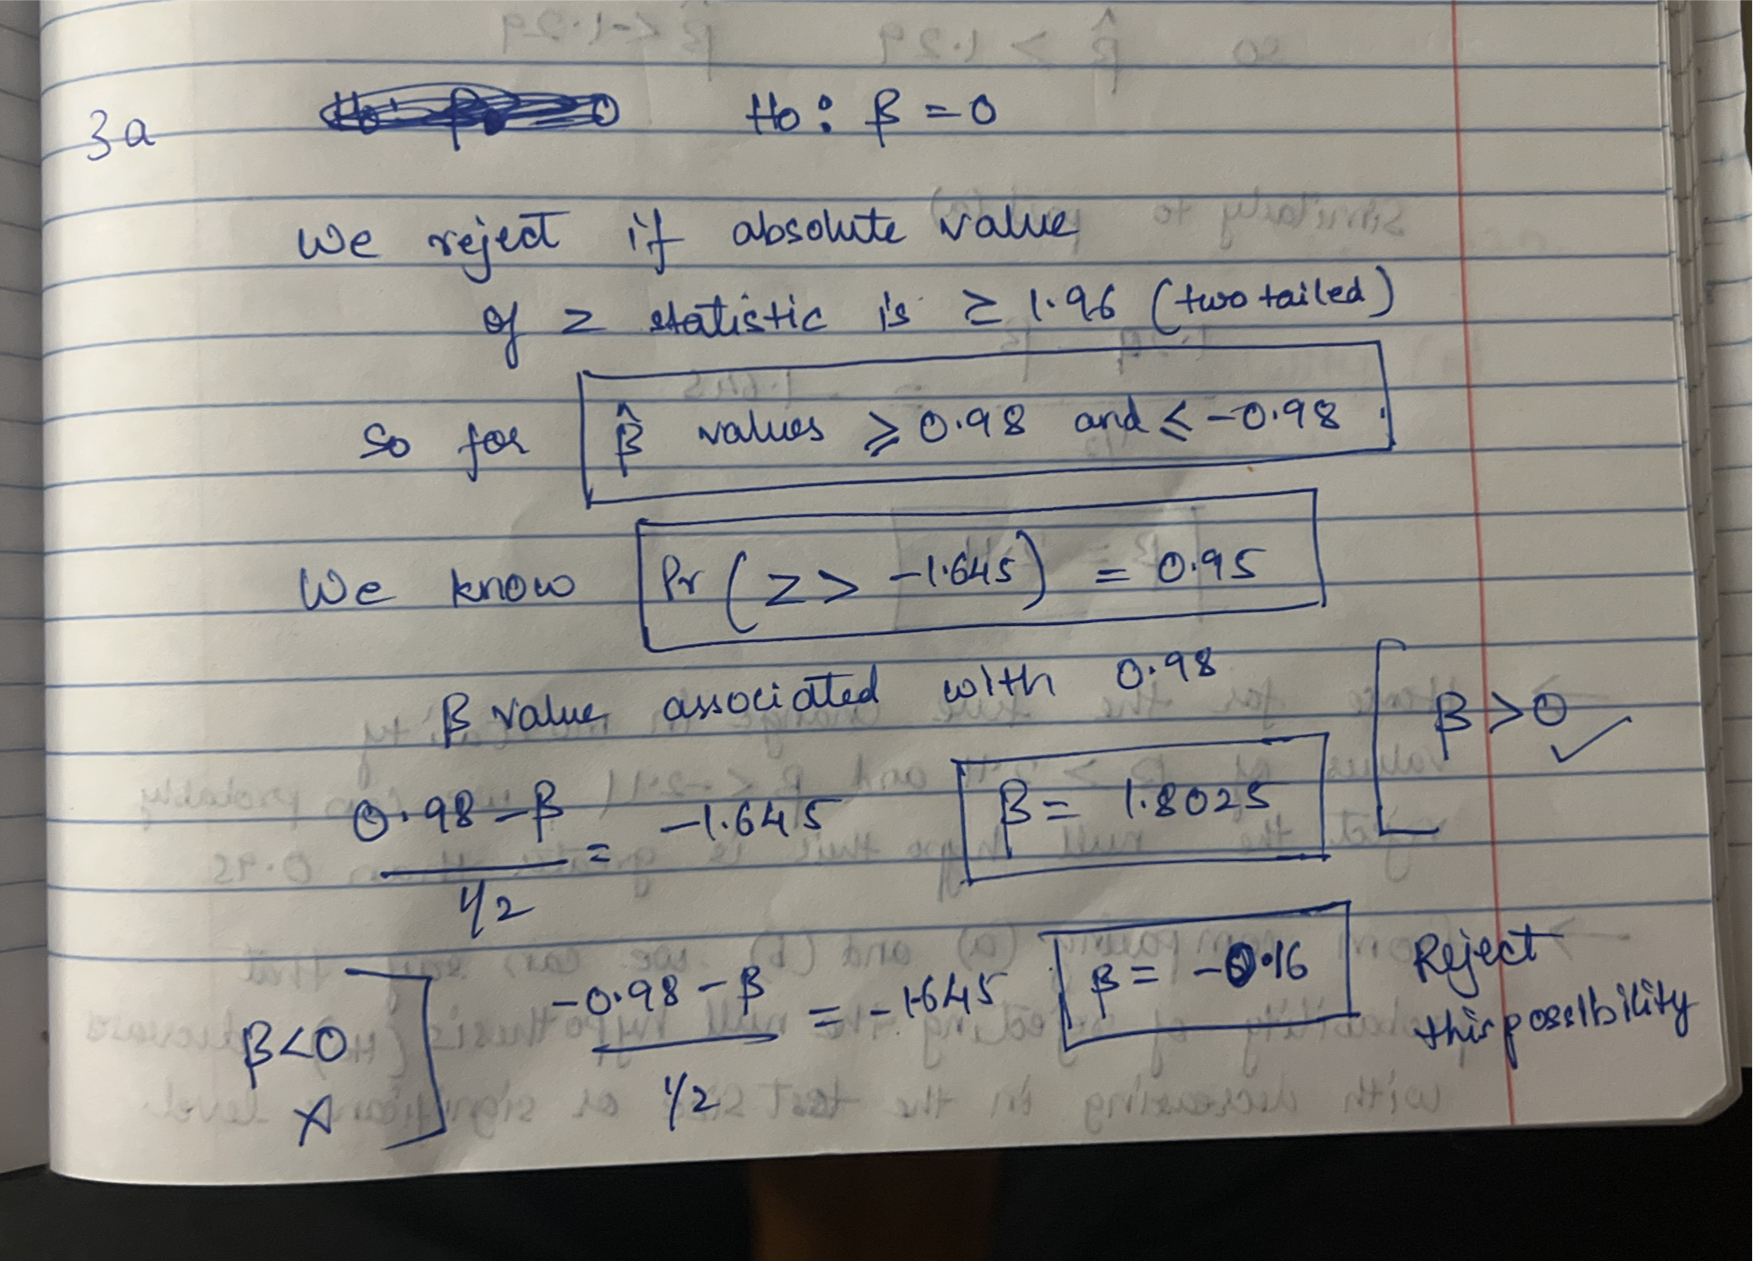 3a H₀: β = 0
We reject if absolute value
of z statistic is ≥ 1.96 (two tailed)
so for β̂ values ≥ 0.98 and ≤ -0.98
We know Pr (Z > -1.645) = 0.95
β value associated with 0.98
(0.98 - β)/(1/2) = -1.645 β = 1.8025 β > 0 ✓
β < 0 X (-0.98 - β)/(1/2) = -1.645 β = -0.16 Reject
this possibility